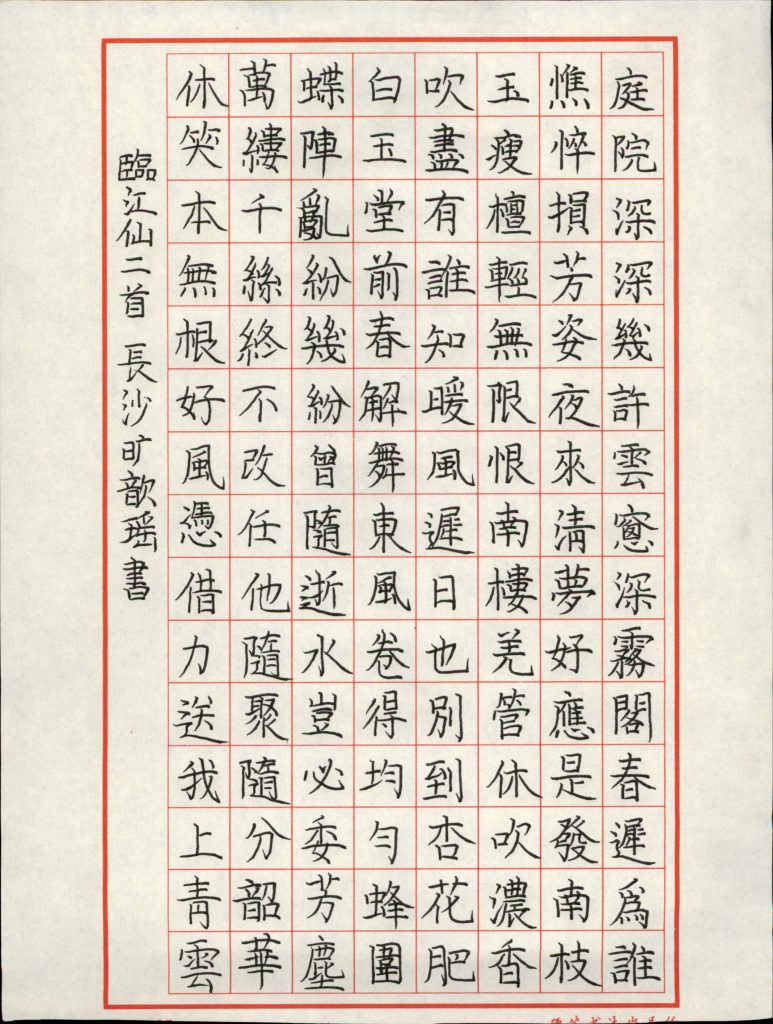 庭院深深幾許雲窗深霧閣春遲為誰
憔悴損芳姿夜來清夢好應是發南枝
玉瘦檀輕無限恨南樓羌管休吹濃香
吹盡有誰知暖風遲日也別到杏花肥
白玉堂前春解舞東風卷得均勻蜂圍
蝶陣亂紛幾紛曾隨逝水豈必委芳塵
萬縷千絲終不改任他隨聚隨分韶華
休笑本無根好風憑借力送我上青雲
臨江仙二首 長沙旷歆瑶書